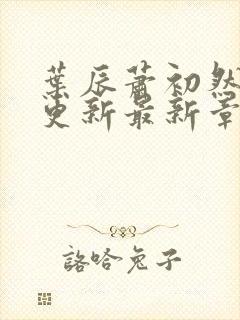 葉辰蕭初然
更新最新章
詻哈兔子